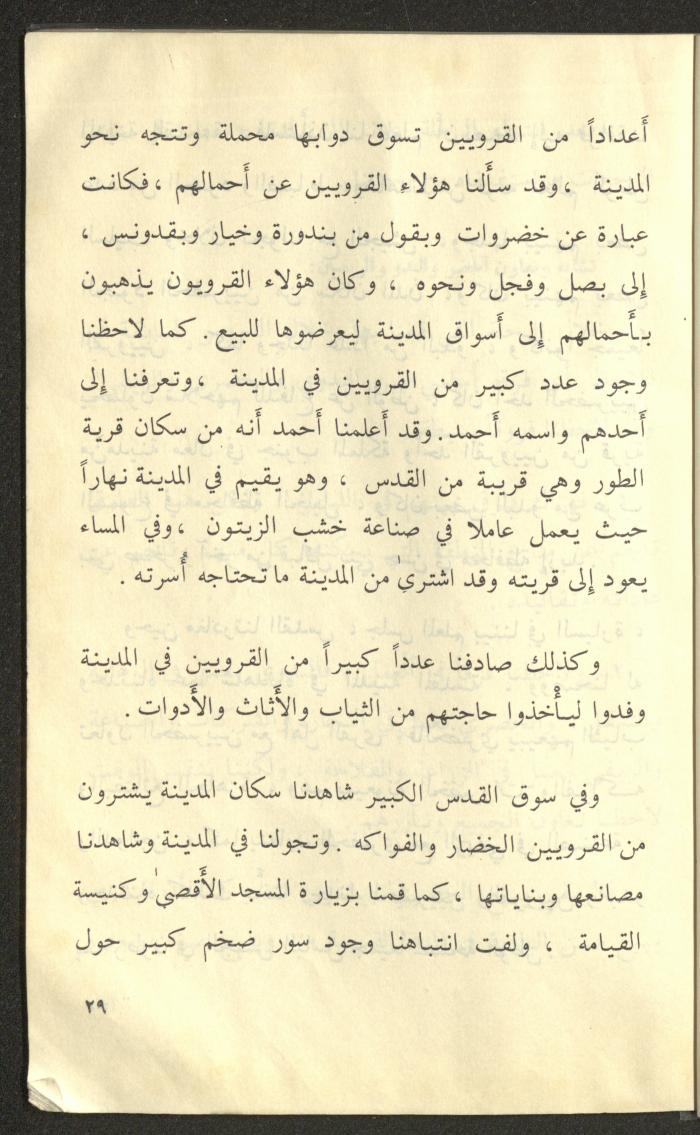 أَعداداً من القرويين تسوق دوابها محملة وتتجه نحو
المدينة ، وقد سأَلنا هؤلاء القرويين عن أَحمالهم ، فكانت
عبارة عن خضروات وبقول من بندورة وخيار وبقدونس ،
إلى بصل وفجل ونحوه ، وكان هؤلاء القرويون يذهبون
بأَحمالهم إِلى أَسواق المدينة ليعرضوها للبيع . كما لاحظنا
وجود عدد كبير من القرويين في المدينة ، وتعرفنا إِلى
أَحدهم واسمه أَحمد . وقد أَعلمنا أَحمد أَنه من سكان قرية
الطور وهي قريبة من القدس ، وهو يقيم في المدينة نهاراً
حيث يعمل عاملا في صناعة خشب الزيتون ، وفي المساء
يعود إِلى قريته وقد اشترى من المدينة ما تحتاجه أُسرته .
وكذلك صادفنا عدداً كبيراً من القرويين في المدينة
وفدوا ليأْخذوا حاجتهم من الثياب والأَثاث والأَدوات .
وفي سوق القدس الكبير شاهدنا سكان المدينة يشترون
من القرويين الخضار والفواكه . وتجولنا في المدينة وشاهدنا
مصانعها وبناياتها ، كما قمنا بزيارة المسجد الأَقصىٰ وكنيسة
القيامة ، ولفت انتباهنا وجود سور ضخم كبير حول
٢٩